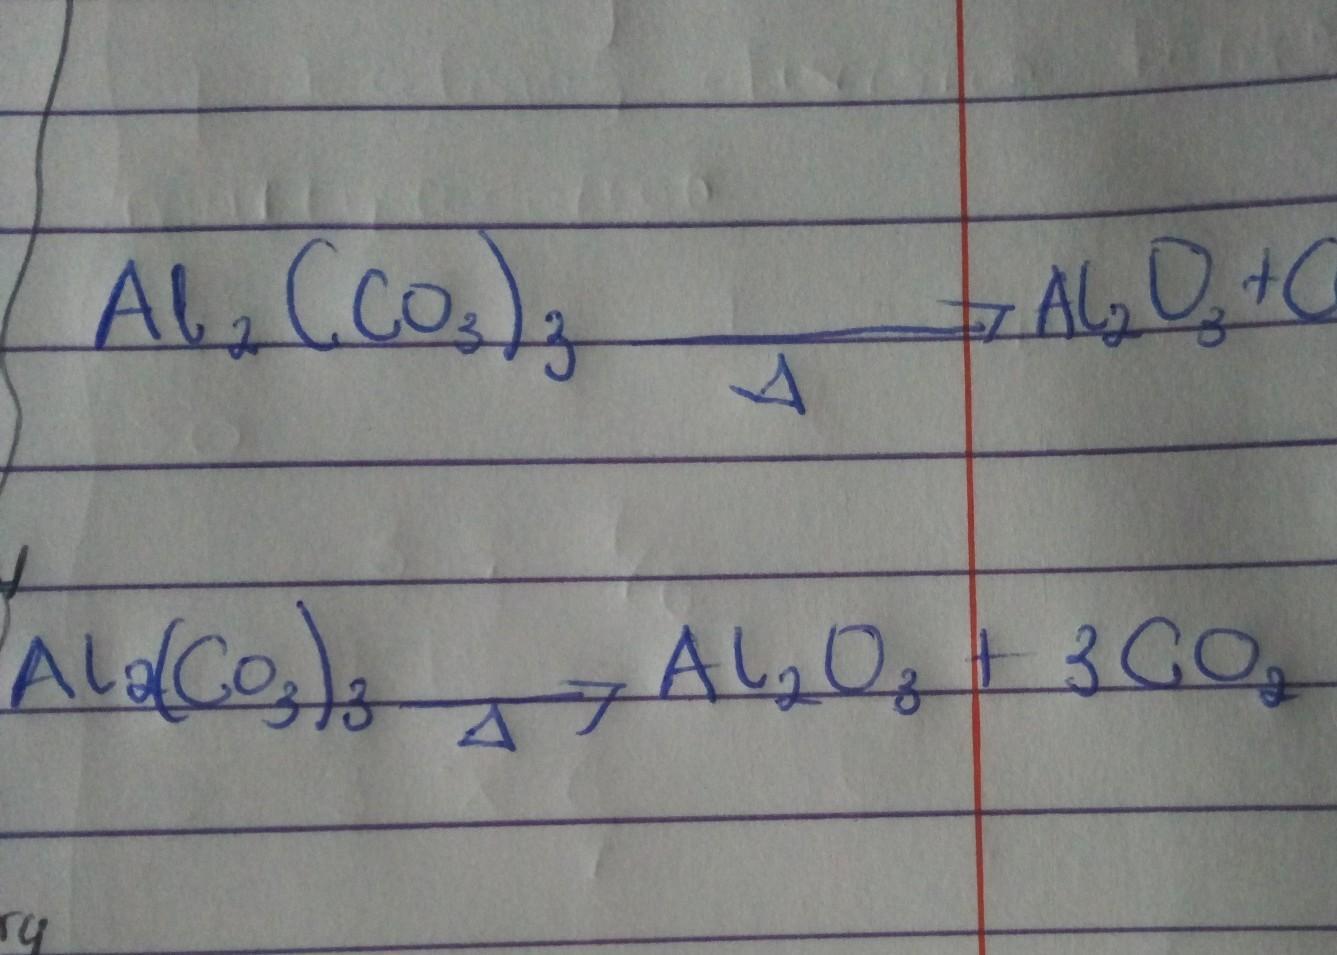 Al₂(CO₃)₃ ⟶ Al₂O₃ + C
Δ
Al₂(CO₃)₃ ⟶ Al₂O₃ + 3CO₂
Δ
ry